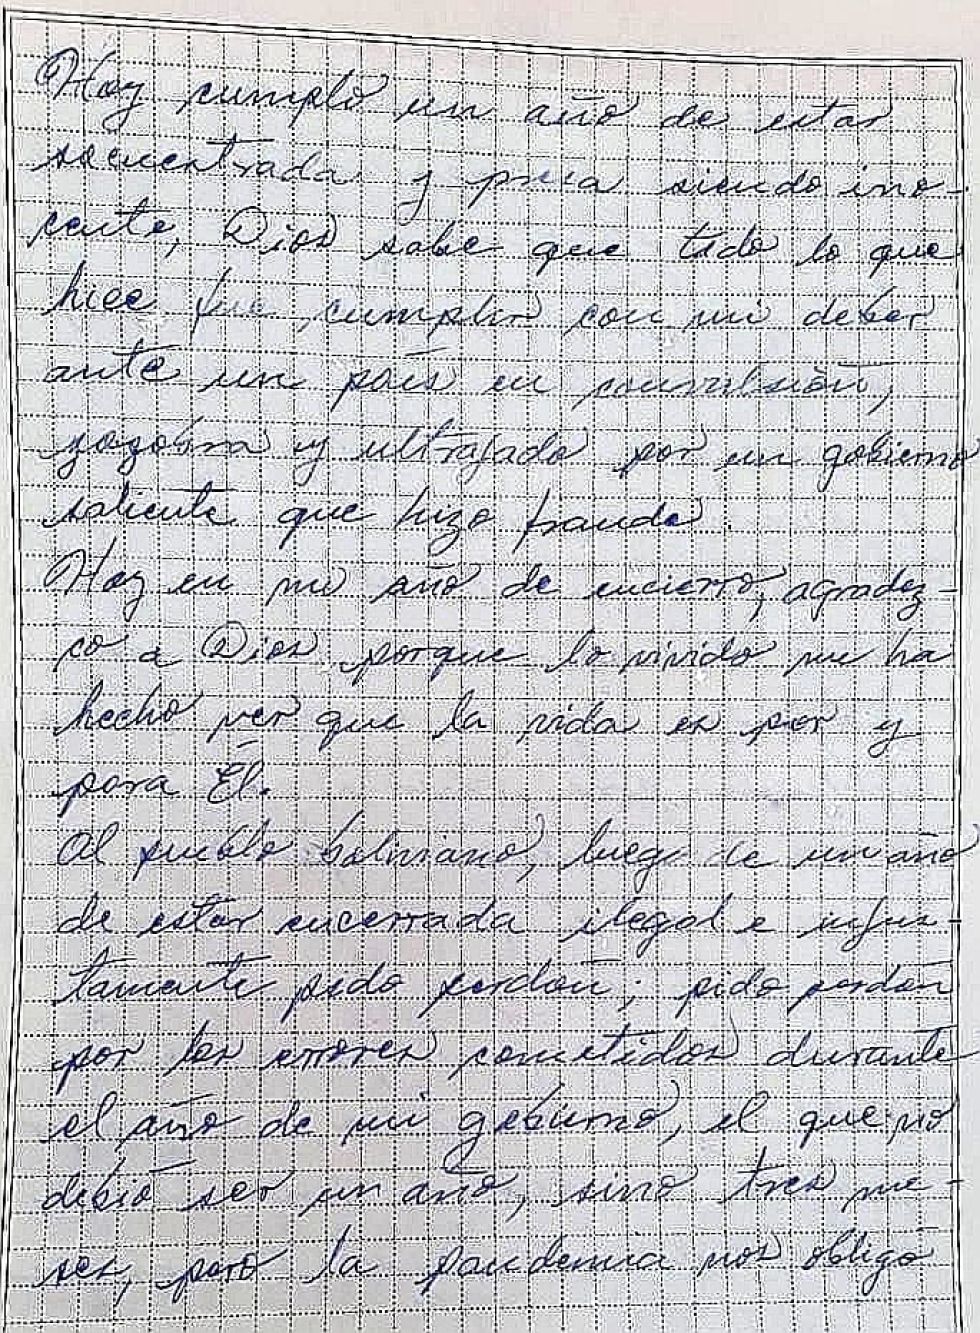 Hoy cumplo un año de estar
secuestrada y presa siendo ino-
cente, Dios sabe que todo lo que
hice fue cumplir con mi deber
ante un país en convulsión,
zozobra y ultrajado por un gobierno
saliente que hizo fraude.
Hoy en mi año de encierro, agradez-
co a Dios porque lo vivido me ha
hecho ver que la vida es por y
para Él.
Al pueblo boliviano, luego de un año
de estar encerrada ilegal e injus-
tamente pido perdón; pido perdón
por los errores cometidos durante
el año de mi gobierno, el que no
debió ser un año, sino tres me-
ses, pero la pandemia nos obligó